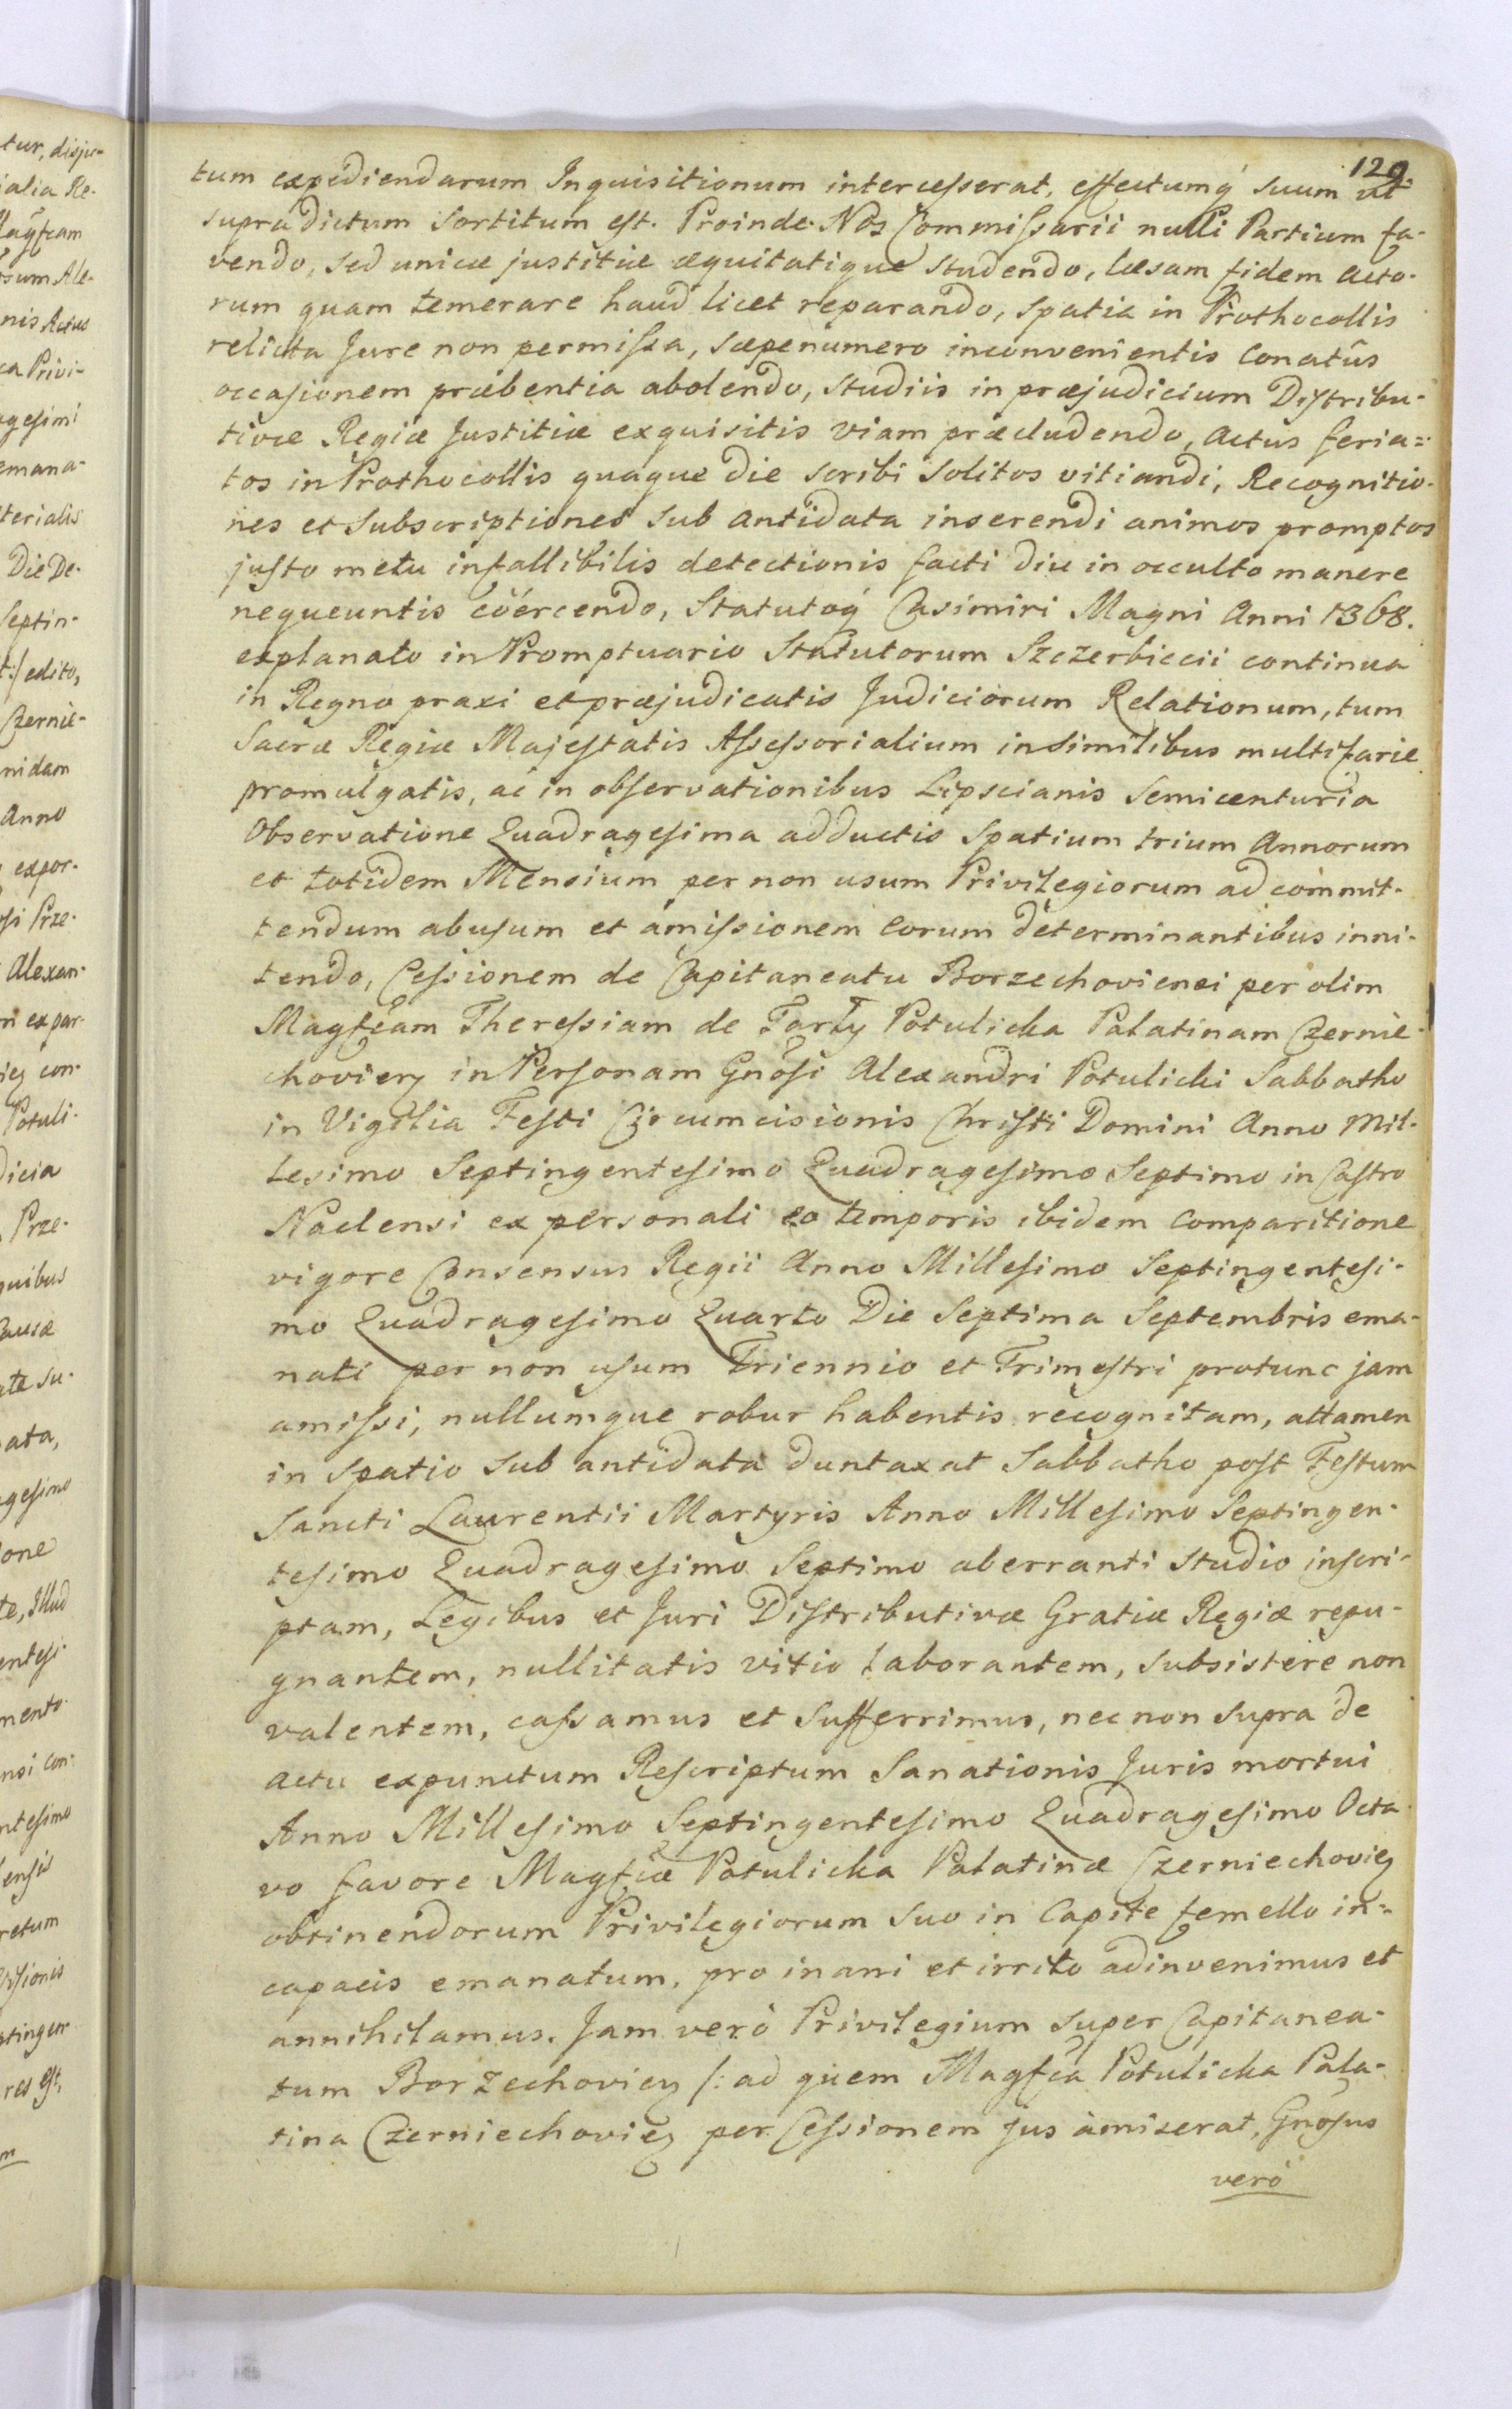 129.
tum expediendarum Inquisitionum intercesserat, effectumq́ suum ut
supradictum sortitum est. Proinde Nos Commissarii nulli Partium fa-
vendo, sed unicæ justitiæ æquitatique studendo, læsam fidem acto-
rum quam temerare haud licet reparando, spatia in Prothocollis
relicta Jure non permissa, sæpenumero inconvenientis Conatûs
occasionem præbentia abolendo, studiis in præjudicium Distribu-
tivæ Regiæ Justitiæ exquisitis viam præcludendo, actus feria=
tos in Prothocollis quaque die scribi solitos vitiandi, Recognitio-
nes et Subscriptiones sub antidata inserendi animos promptos
justo metu infallibilis detectionis facti diu in occulto manere
nequeuntis coërcendo, Statutoq́ Casimiri Magni Anni 1368.
explanato in Promptuario Statutorum Szczerbiccii continua
in Regno praxi et præjudicatis Judiciorum Relationum, tum
Sacræ Regiæ Majestatis Assessorialium in similibus multifarie
promulgatis, ac in observationibus Lipscianis semicenturia
Observatione Quadragesima adductis Spatium trium Annorum
et totidem Mensium per non usum Privilegiorum ad commit-
tendum abusum et amissionem eorum determinantibus inni-
tendo, Cessionem de Capitaneatu Borzechoviensi per olim
Magfcam Theressiam de Tarły Potulicka Palatinam Czernie-
choviens in Personam Gnosi Alexandri Potulicki Sabbatho
in Vigilia Festi Circumcisionis Christi Domini Anno Mil-
lesimo Septingentesimo Quadragesimo Septimo in Castro
Naclensi ex personali eo temporis ibidem comparitione
vigore Consensus Regii Anno Millesimo Septingentesi-
mo Quadragesimo Quarto Die Septima Septembris ema-
nati per non usum Triennio et Trimestri protunc jam
amissi, nullumque robur habentis recognitam, attamen
in spatio sub antidata duntaxat Sabbatho post Festum
Sancti Laurentii Martyris Anno Millesimo Septingen-
tesimo Quadragesimo Septimo aberranti studio inscri-
ptam, Legibus et Juri Distributivæ Gratiæ Regiæ repu-
gnantem, nullitatis vitio laborantem, subsistere non
valentem, cassamus et sufferrimus, nec non supra de
actu expunctum Rescriptum Sanationis Juris mortui
Anno Millesimo Septingentesimo Quadragesimo Octa
vo favore Magfcæ Potulicka Palatinæ Czerniechovieg
obtinendorum Privilegiorum suo in Capite femello in=
capacis emanatum, pro inani et irrito adinvenimus et
annihilamus. Jam verò Privilegium super Capitanea-
tum Borzechovieg /: ad quem Magfca Potulicka Pala-
tina Czerniechovieg per Cessionem jus amiserat, Gnosus
verò